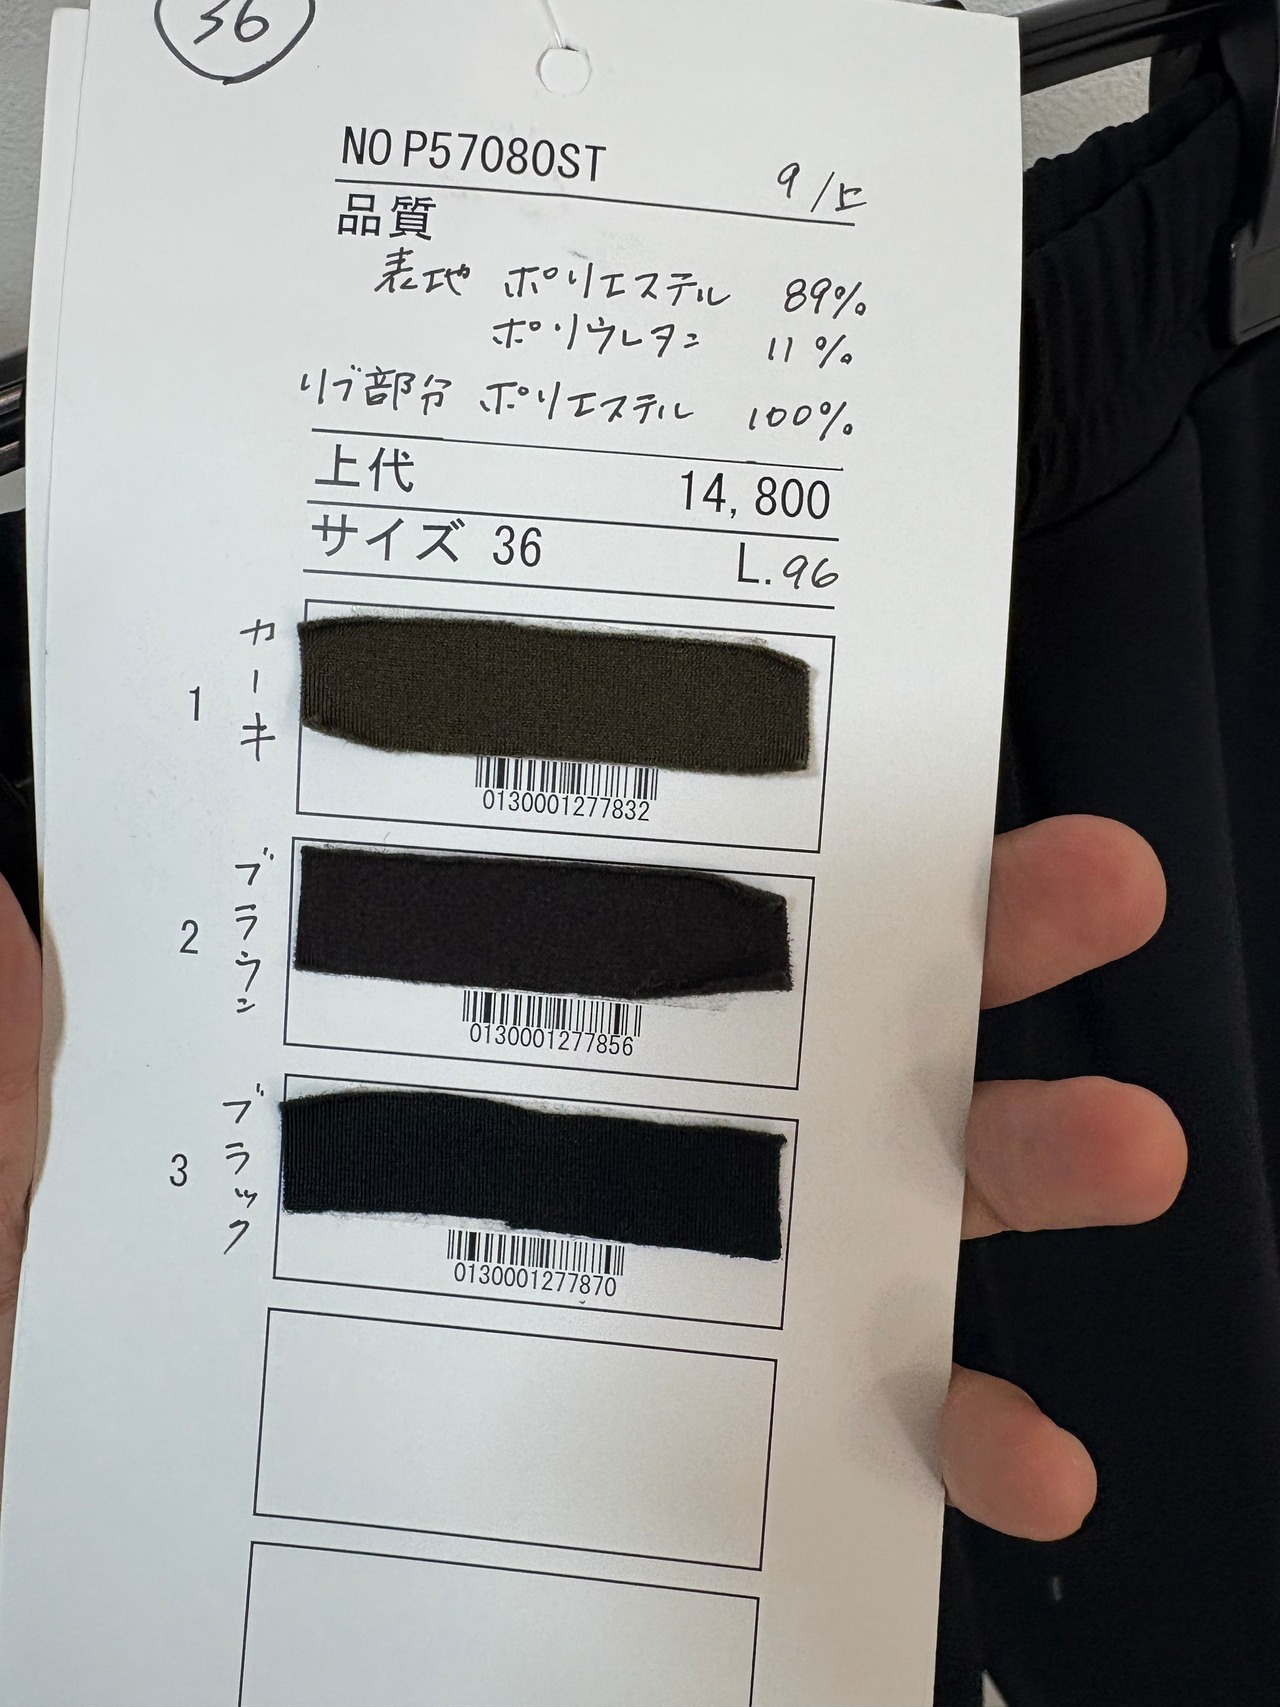 36
NO P57080ST 9/上
品質
表地 ポリエステル 89%
ポリウレタン 11%
リブ部分 ポリエステル 100%
上代 14,800
サイズ 36 L.96
1 カーキ
0130001277832
2 ブラウン
0130001277856
3 ブラック
0130001277870